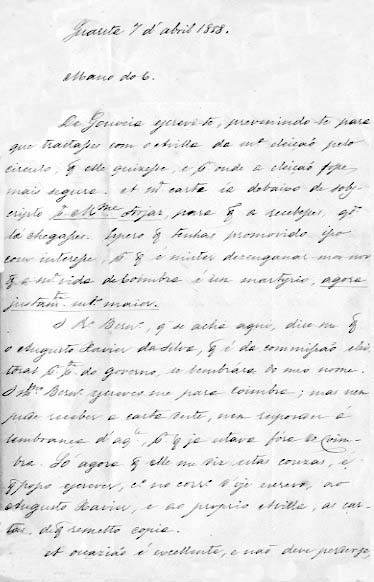 Quarta 7 d' abril 1858.
Mano do C.
De Gouveia escrevi-te, prevenindo-te para
que tractasses com o Avilla da mª eleição pelo
circulo, q̃ elle quizesse, e pª onde a eleição fosse
mais segura. A mª carta ia debaixo de sob-
scripto pª Mme para q̃ a recebesses, qdo
lá chegasses. Espero q̃ tenhas promovido isso
com interesse, pq̃ é mister desenganar-
q̃ a mª vida de Coimbra é um martyrio, agora
justamte mto maior.
O Bernº, q̃ se acha aqui, disse-me q̃
o Augusto Xavier da Silva, q̃ é da commissão elei-
toral pr pte do governo, se lembrara do meu nome.
O Bernº escreveo-me para Coimbra; mas nem
pude receber a carta delle, nem responder á
lembrança d'aqle, pq̃ já estava fóra de Coim-
bra. Só agora q̃ elle me diz estas couzas, é
q̃ posso escrever, e no corrº d'hoje escrevo, ao
Augusto Xavier, e ao proprio Avilla, as car-
tas, de q̃ remetto copia.
A occazião é excellente, e não deve perder-se,